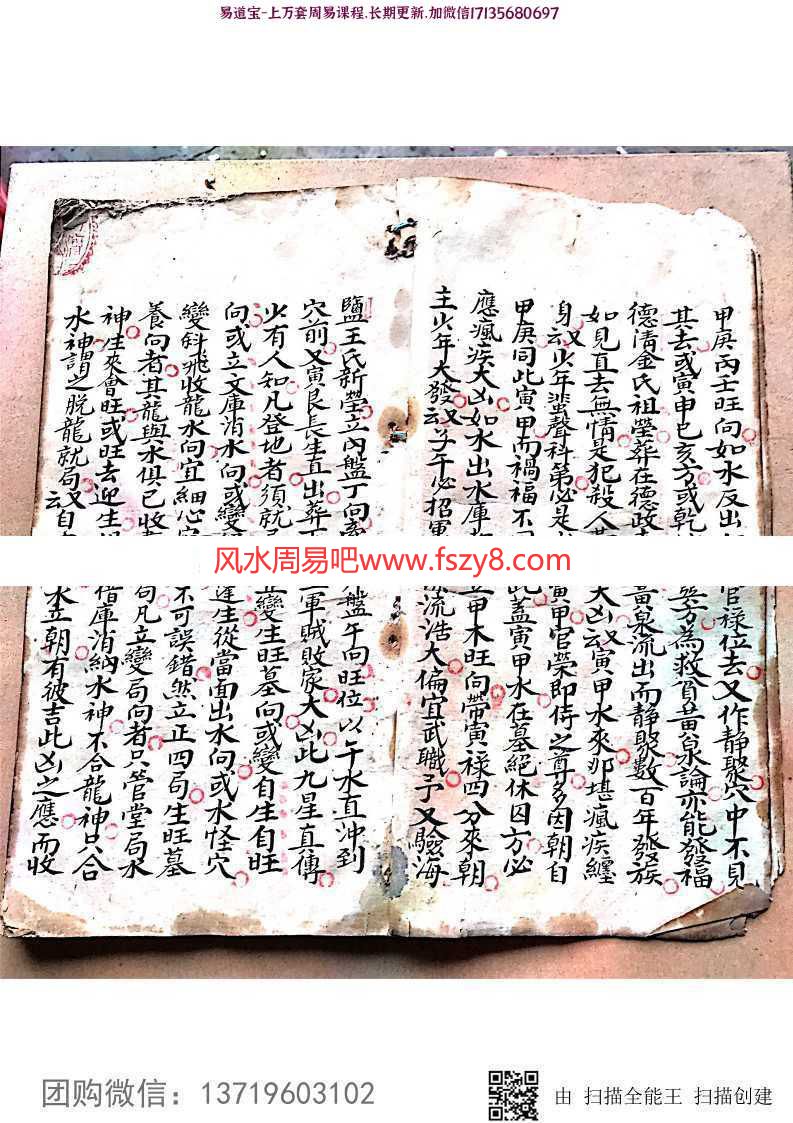 易道宝-上万套周易课程.长期更新.加微信17135680697
甲庚丙壬旺向如水反出 官祿位去又作靜聚穴中不見
其去或寅申巳亥方或乾 方為救貧黃泉論亦能發福
德清金氏祖塋葬在德政 黃泉流出而靜聚數百年發族
如見直去無情是犯殺人 大凶又云寅甲水來那堪瘋疾纏
身又云少年蜚聲科第必是 寅甲官榮即侍之尊多因朝自
甲庚同此寅甲而禍福不 此蓋寅甲水在墓絕休囚方必
應瘋疾大凶如水出水庫 立甲木旺向帶寅祿四分來朝
主少年大發又云子午必招軍 流浩大偏宜武職予又驗海
鹽王氏新塋立內盤丁向 盤午向旺位以午水直沖到
穴前又寅艮長生直出葬 軍賊敗家大凶此九星真傳
少有人知凡登地者須就 立變生旺墓向或變自生自旺
向或立文庫消水向或變 逢生從當面出水向或水怪穴
變斜飛收龍水向宜細心 不可誤錯然立正四局生旺墓
養向者其龍與水俱已收 局凡立變局向者只管堂局水
神生來會旺或旺去迎生 借庫消納水神不合龍神只合
水神謂之脫龍就局又云自 水立朝有彼吉此凶之應而收
风水周易吧www.fszy8.com
团购微信：13719603102
由 扫描全能王 扫描创建